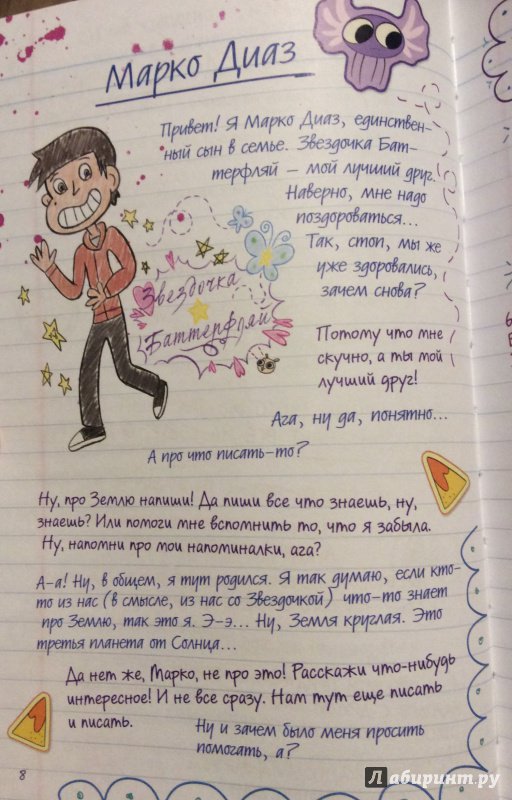 Марко Диаз
Привет! Я Марко Диаз, единствен-
ный сын в семье. Звездочка Бат-
терфляй – мой лучший друг.
Наверно, мне надо
поздороваться...
Так, стоп, мы же
уже здоровались,
зачем снова?
Звездочка
Баттерфляй
Потому что мне
скучно, а ты мой
лучший друг!
Ага, ну да, понятно...
А про что писать-то?
Ну, про Землю напиши! Да пиши все что знаешь, ну,
знаешь? Или помоги мне вспомнить то, что я забыла.
Ну, напомни про мои напоминалки, ага?
А-а! Ну, в общем, я тут родился. Я так думаю, если кто-
то из нас (в смысле, из нас со Звездочкой) что-то знает
про Землю, так это я. Э-э... Ну, Земля круглая. Это
третья планета от Солнца...
Да нет же, Марко, не про это! Расскажи что-нибудь
интересное! И не все сразу. Нам тут еще писать
и писать.
Ну и зачем было меня просить
помогать, а?
8
Лабиринт.ру